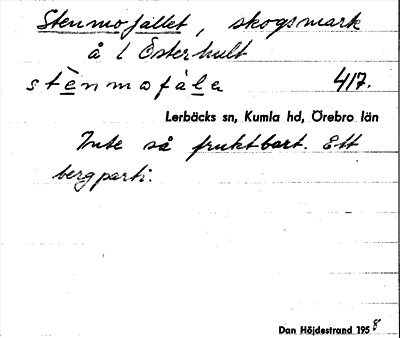 Stenmofallet, skogsmark
å 1 Österhult
stènmofàla 417.
Lerbäcks sn, Kumla hd, Örebro län
Inte så fruktbart. Ett
bergparti.
Dan Höjdestrand 1958